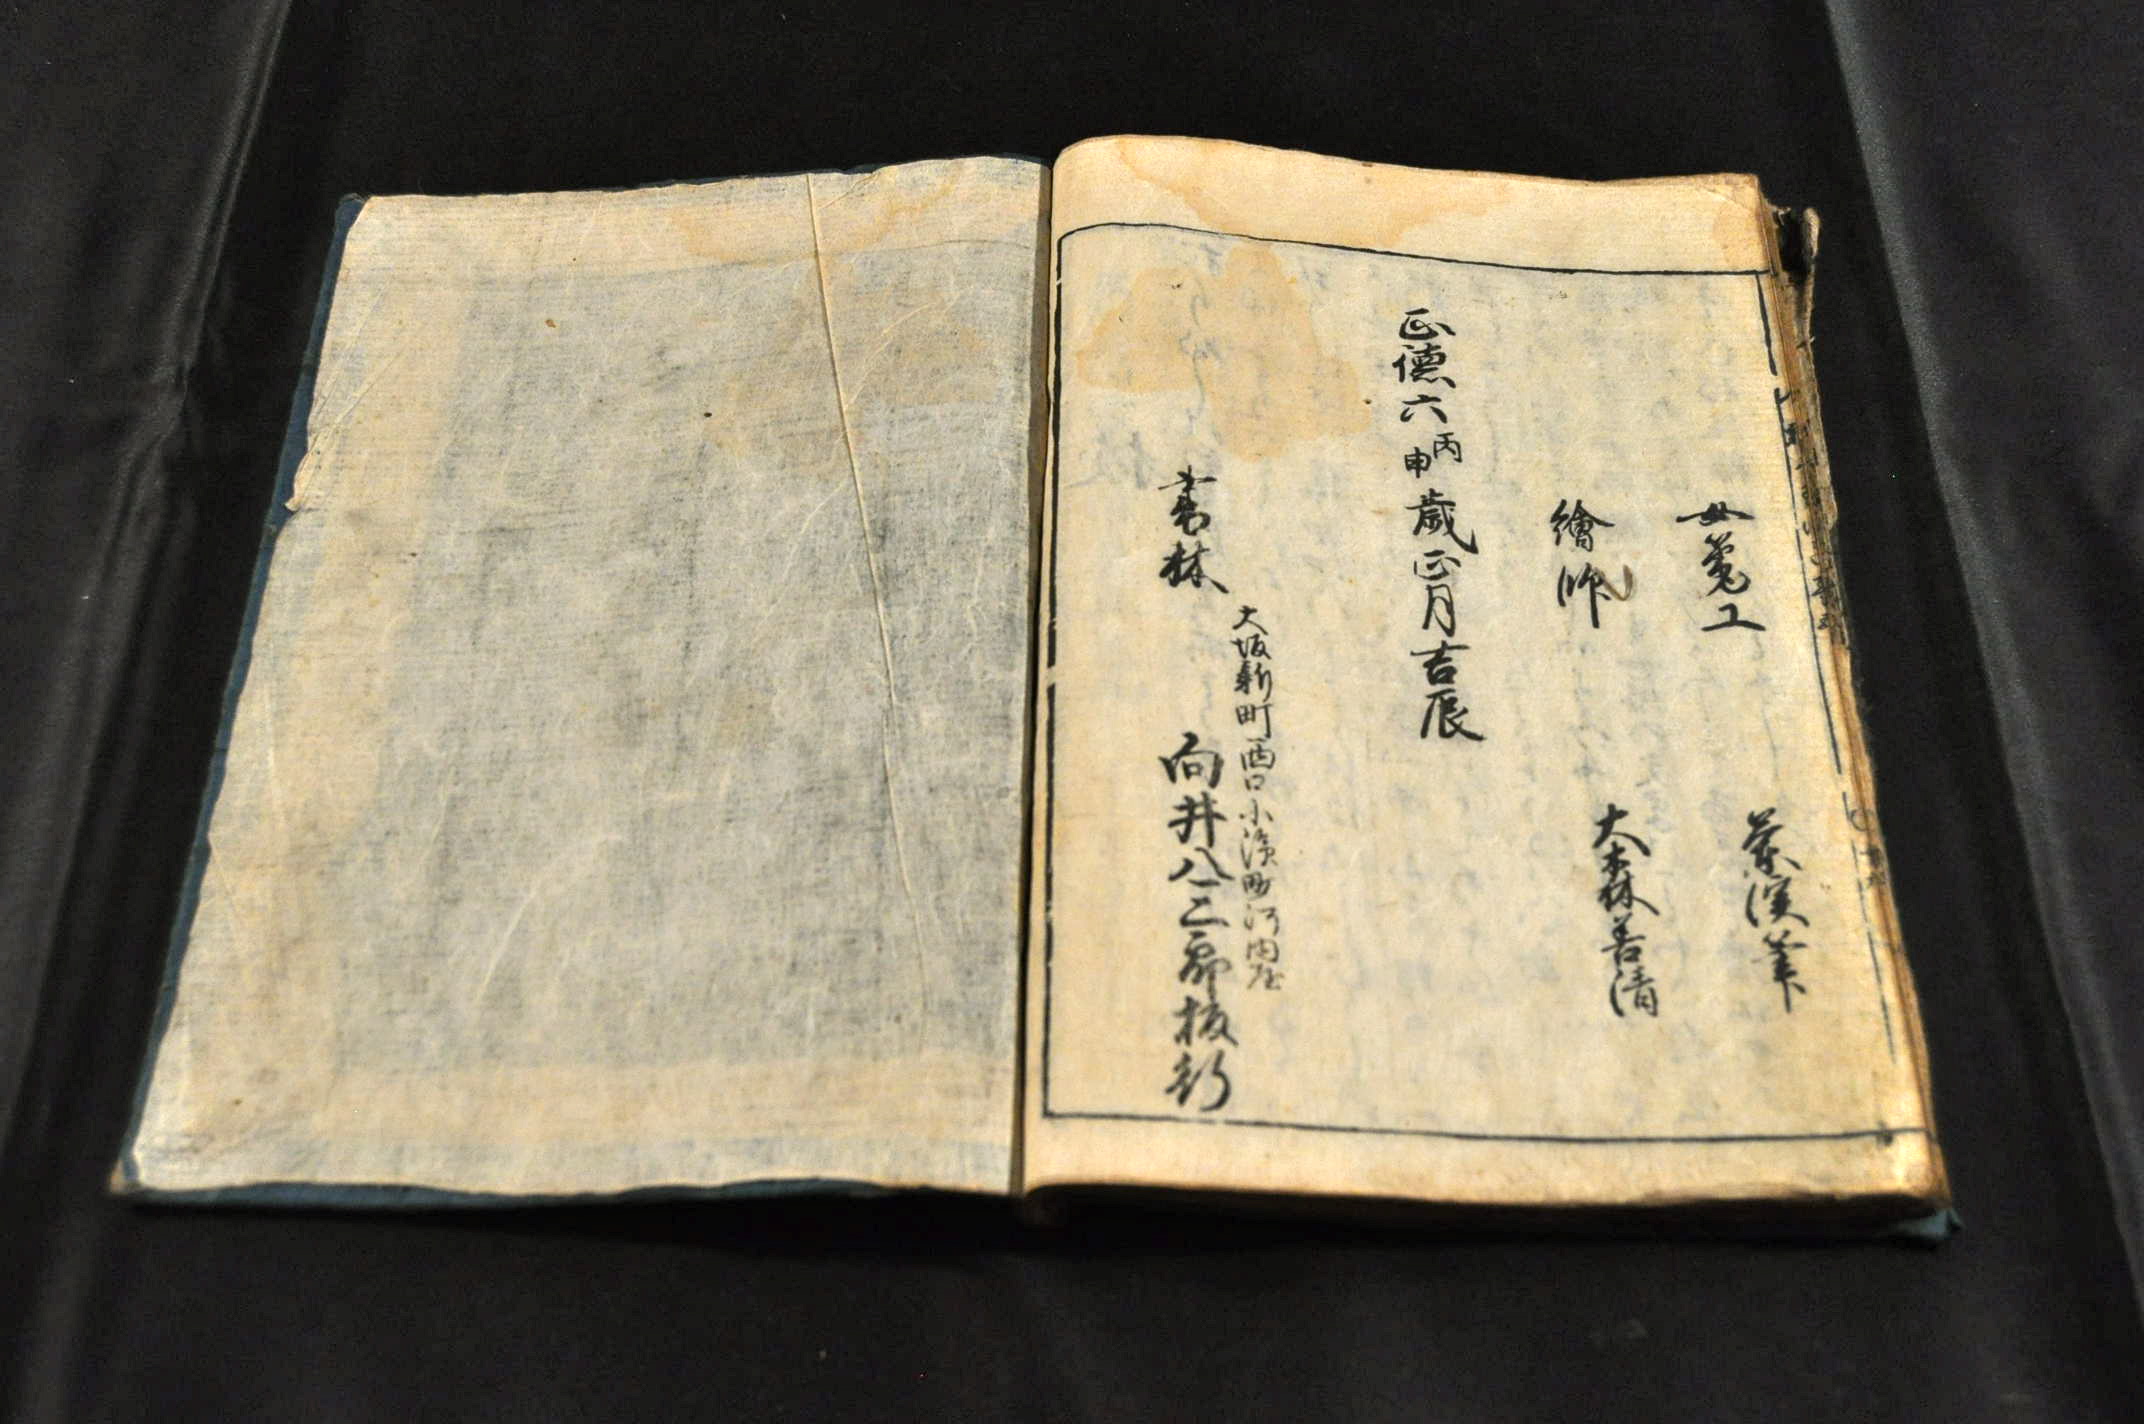 女筆工　　筆
繪師　大森善清
正德六丙申歲正月吉辰
大坂新町西口小濱町河内屋
書林　向井八三郎板行